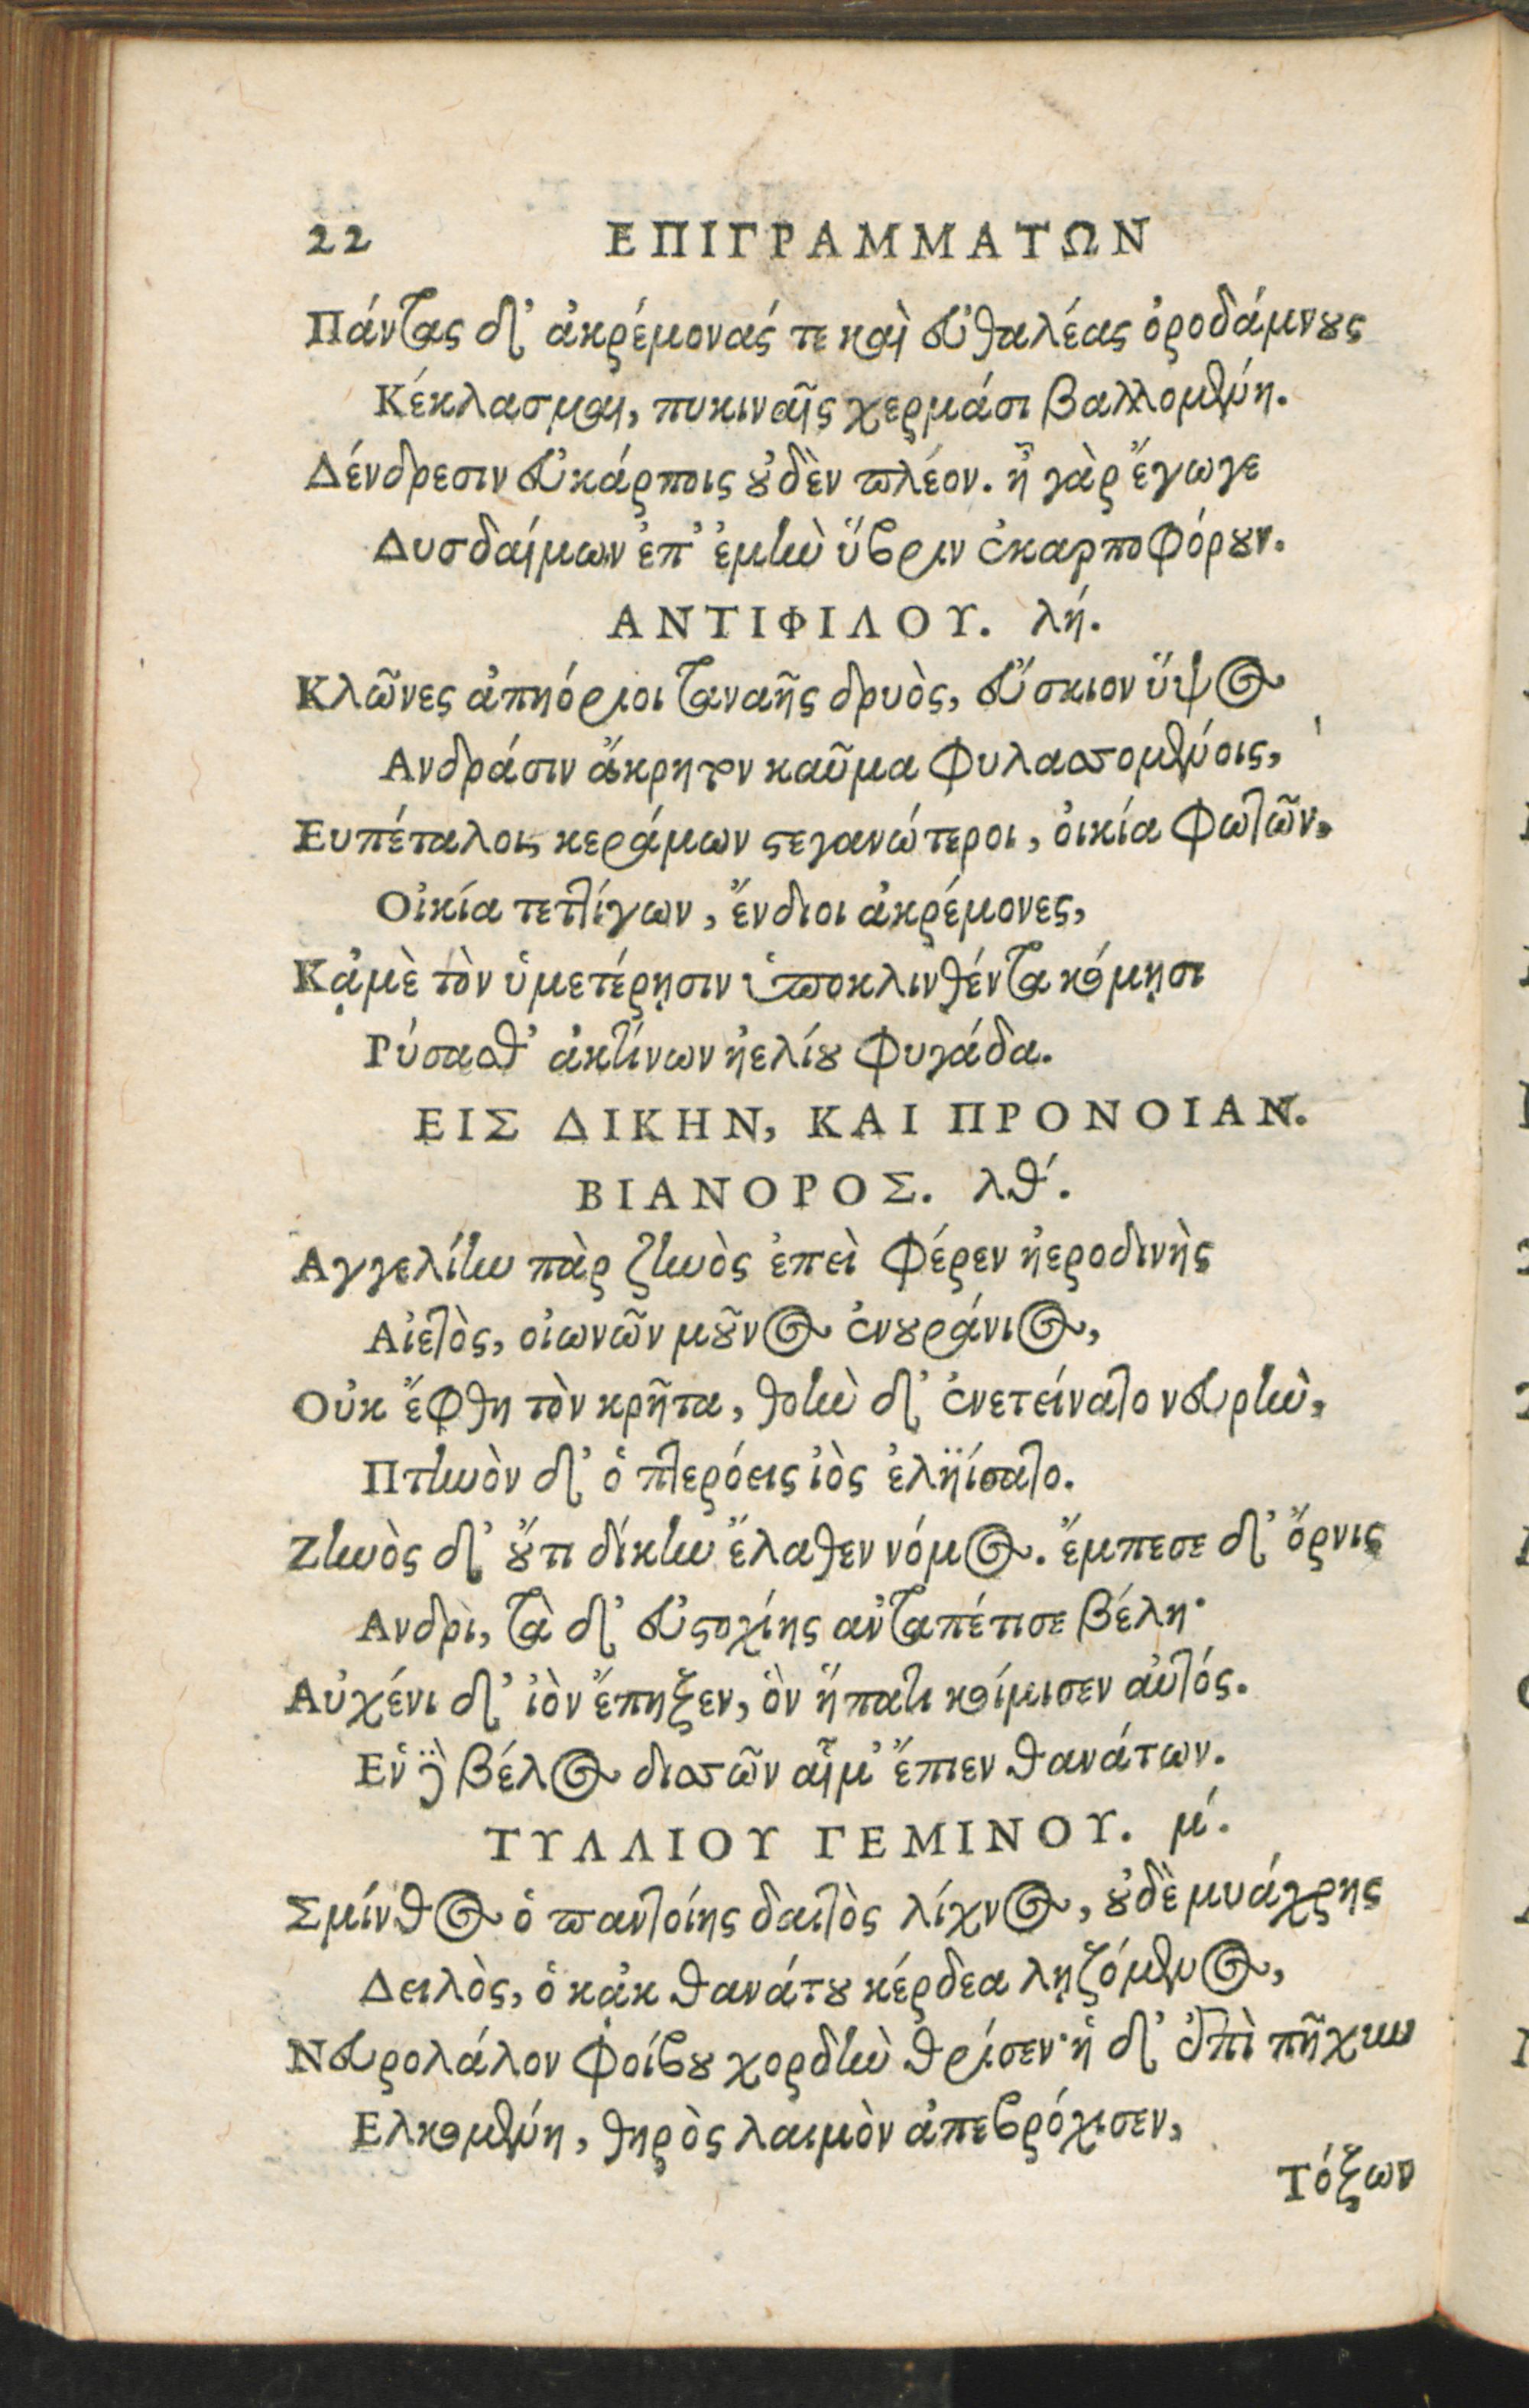 22 ΕΠΙΓΡΑΜΜΑΤΩΝ
Πάντας δ' ἀκρέμονάς τε καὶ εὐθαλέας ὀροδάμνους
Κέκλασμαι, πυκιναῖς χερμάσι βαλλομένη.
Δένδρεσιν εὐκάρποις οὐδὲν πλέον. ἦ γὰρ ἔγωγε
Δυσδαίμων ἐπ' ἐμὴν ὕβριν ἐκαρποφόρουν.
ΑΝΤΙΦΙΛΟΥ. λή.
Κλῶνες ἀπηόριοι ταναῆς δρυὸς, εὔσκιον ὕψος
Ανδράσιν ἄκρητον καῦμα φυλασσομένοις,
Ευπέταλοι, κεράμων στεγανώτεροι, οἰκία φωτῶν,
Οἰκία τεττίγων, ἔνδιοι ἀκρέμονες,
Κᾀμὲ τὸν ὑμετέρῃσιν ὑποκλινθέντα κόμῃσι
Ρύσασθ' ἀκτίνων ἠελίου φυγάδα.
ΕΙΣ ΔΙΚΗΝ, ΚΑΙ ΠΡΟΝΟΙΑΝ.
ΒΙΑΝΟΡΟΣ. λθ'.
Αγγελίην πὰρ ζηνὸς ἐπεὶ φέρεν ἠεροδινὴς
Αἰετὸς, οἰωνῶν μοῦνος ἐνουράνιος,
Οὐκ ἔφθη τὸν κρῆτα, θοὴν δ' ἐνετείνατο νευρὴν,
Πτηνὸν δ' ὁ πτερόεις ἰὸς ἐληΐσατο.
Ζηνὸς δ' οὔτι δίκην ἔλαθεν νόμος. ἔμπεσε δ' ὄρνις
Ανδρὶ, τὰ δ' εὐστοχίης ἀνταπέτισε βέλη·
Αὐχένι δ' ἰὸν ἔπηξεν, ὃν ἥπατι κοίμισεν αὐτός.
Εν δὲ βέλος δισσῶν αἷμ' ἔπιεν θανάτων.
ΤΥΛΛΙΟΥ ΓΕΜΙΝΟΥ. μ'.
Σμίνθος ὁ παντοίης δαιτὸς λίχνος, οὐδὲ μυάγρης
Δειλὸς, ὁ κᾀκ θανάτου κέρδεα ληζόμενος,
Νευρολάλον Φοίβου χορδὴν θρίσεν· ἡ δ' ἐπὶ πῆχυν
Ελκομένη, θηρὸς λαιμὸν ἀπεβρόχισεν,
Τόξων